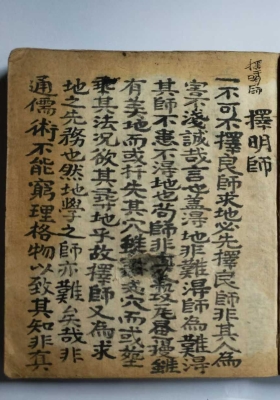 擇明師
擇明師
一不可不擇良師求地必先擇良師非其人為
害不淺誠哉言也盖淂地非難淂師為難淂
其師不患不淂地也苟師非
有美地而或扦失其穴雖 穴而或
乖其法况欲其尋地乎故擇師又為求
地之先務也然地學之師亦難矣哉非
通儒術不能窮理格物以致其知非真